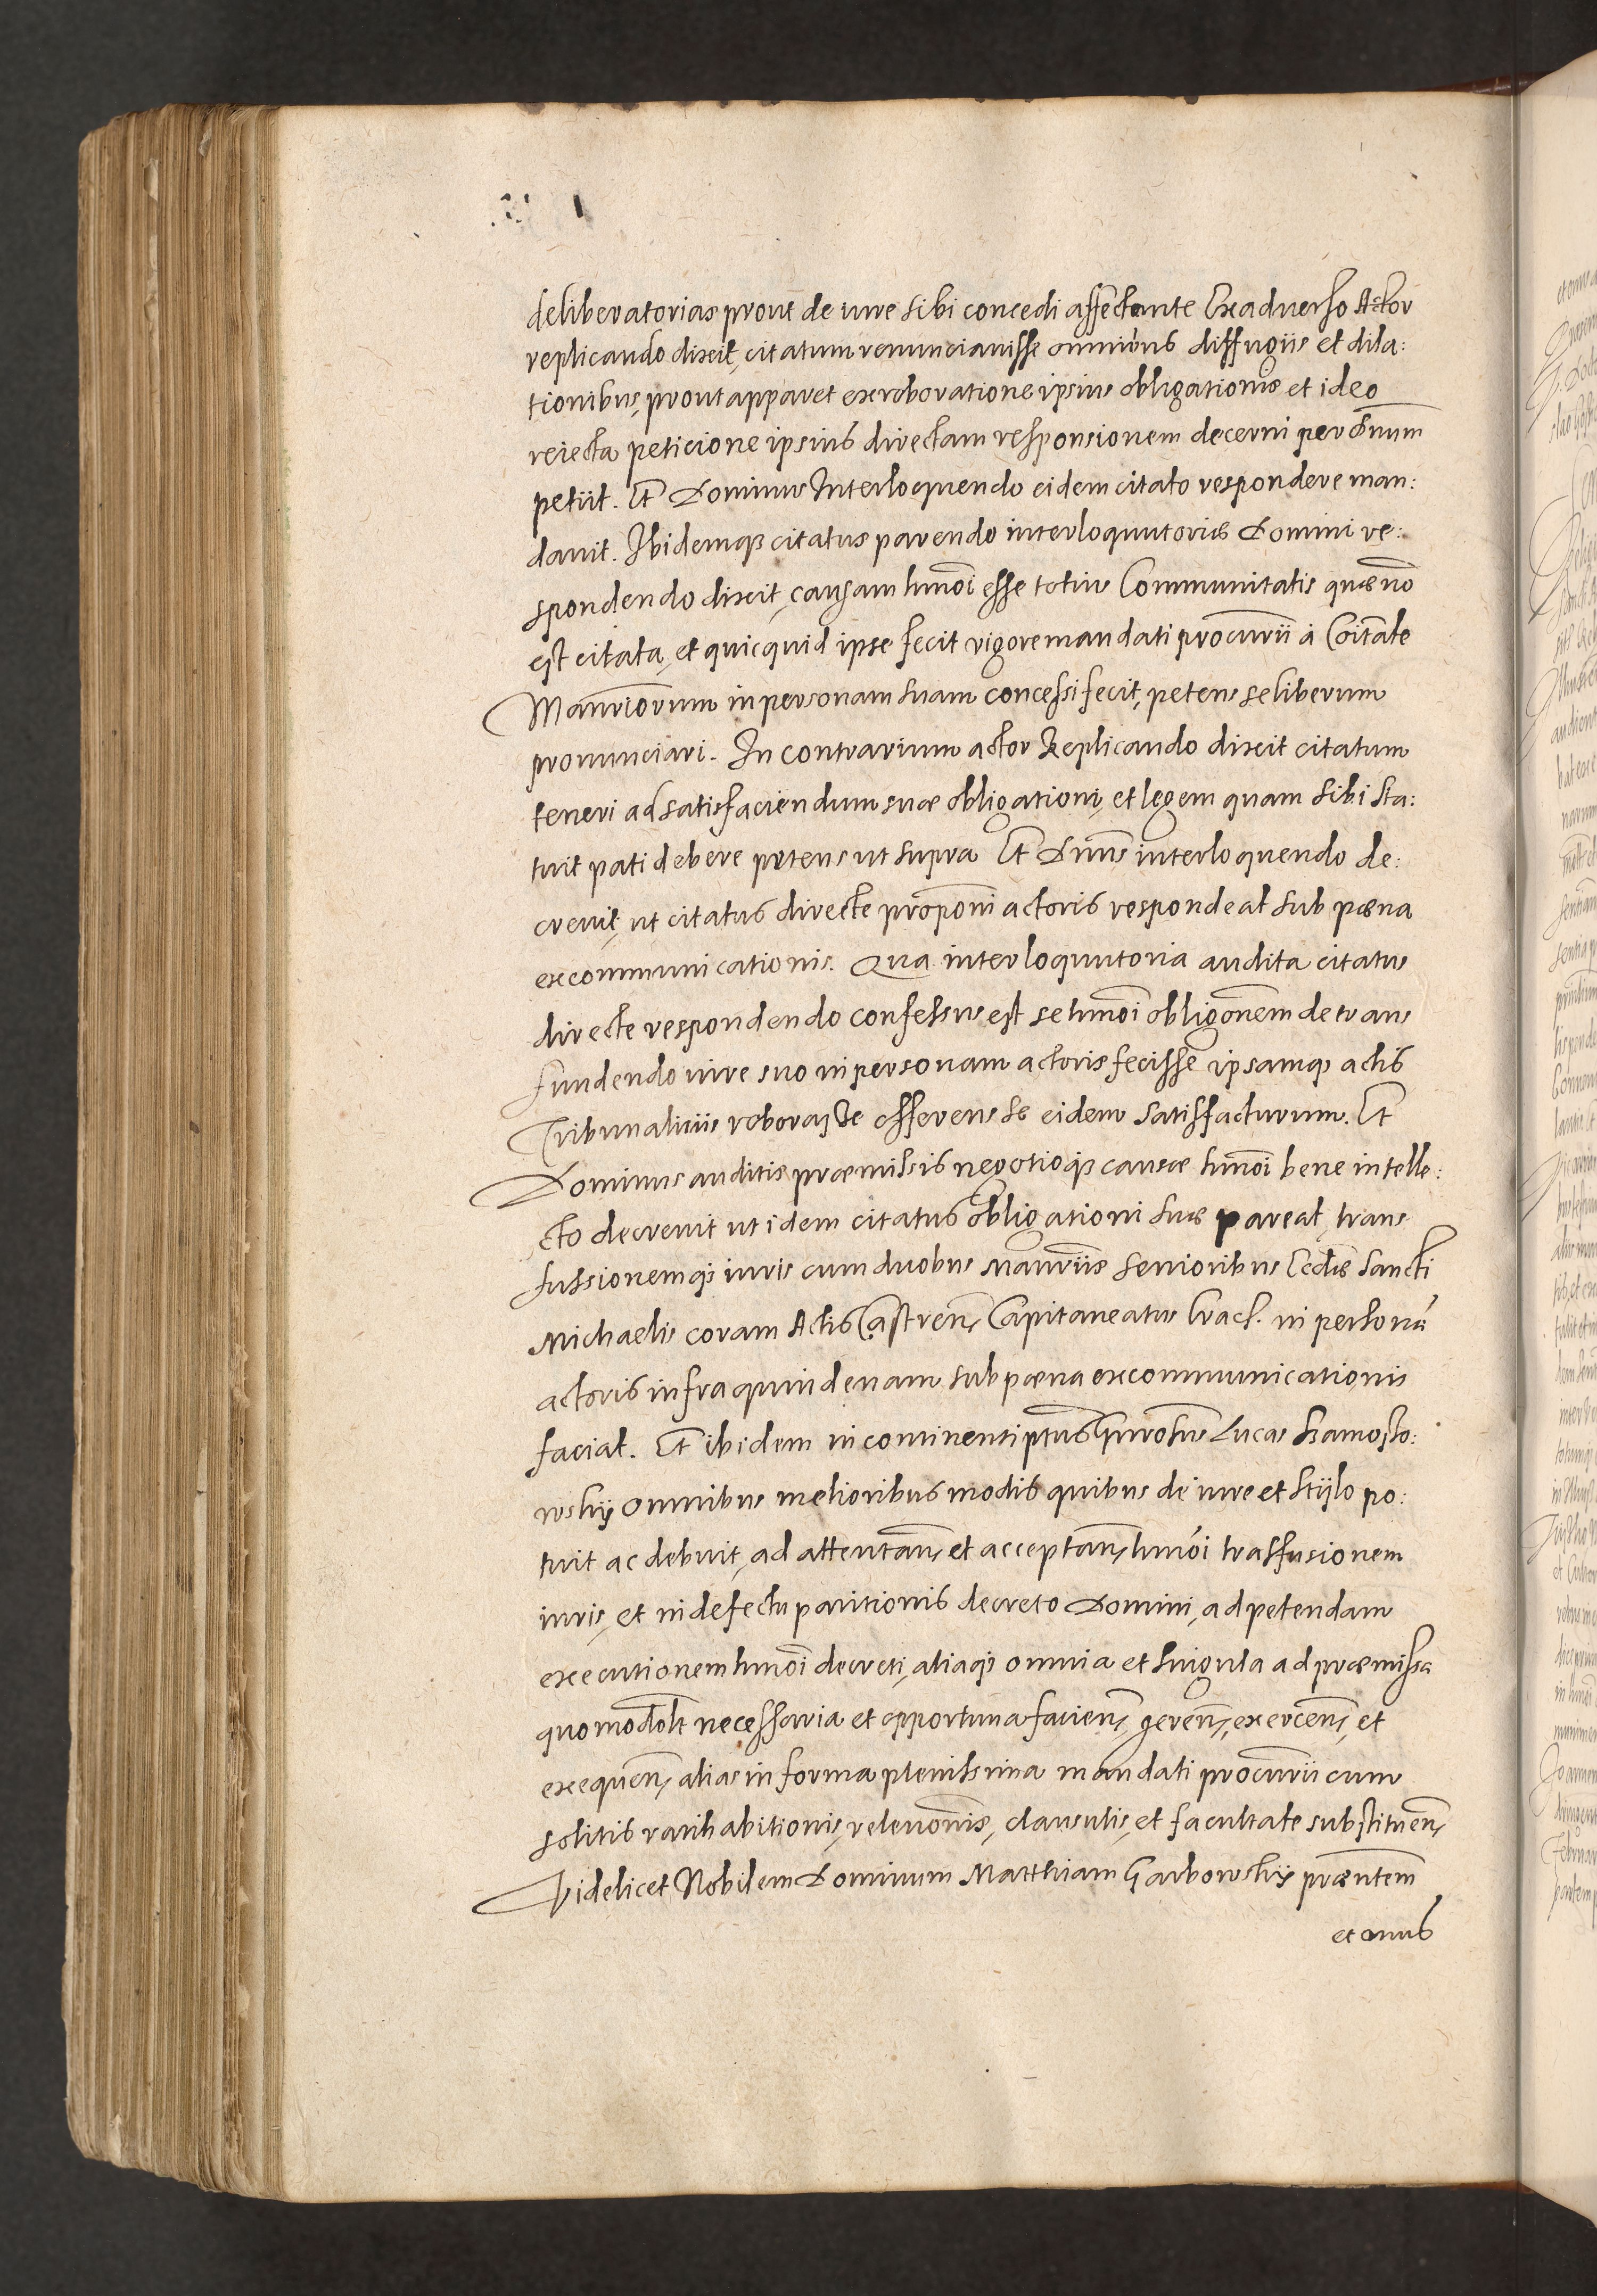 deliberatorias prout de iure sibi concedi affectante Ex adverso Actor
replicando dixit, citatum renunciavisse omnibus diffugiis et dila:
tionibus, prout apparet ex roboratione ipsius obligationis et ideo
reiecta peticione ipsius directam responsionem decerni per d̄num
petiit. Et Dominus Interloquendo eidem citato respondere man:
davit. Ibidemq3 citatus parendo interloquutoriis Domini re:
spondendo dixit, causam hmōi esse totius Communitatis quæ nō
est citata, et quicquid ipse fecit vigore mandati procur̄ii à Cōitate
Mansior̄um in personam suam concessi fecit, petens se liberum
pronunciari. In contrarium actor Replicando dixit citatum
teneri ad satisfaciendum suæ obligationi, et legem quam sibi sta:
tuit pati debere petens ut supra Et Dn̄us interloquendo de:
crevit, ut citatus directe propōni actoris respondeat sub pœna
excommunicationis. Qua interloquutoria audita citatus
directe respondendo confessus est se hmōi obligōnem de trans
fundendo iure suo in personam actoris fecisse ipsamq3 actis
Tribunalitiis roborasse offerens se eidem satisfacturum. Et
Dominus auditis præmissis negotioq3 causæ hmōi bene intelle:
cto decrevit ut idem citatus obligationi suæ pareat, trans
fussionemq3 iuris cum duobus Mansr̄iis senioribus Eccl̄iæ Sancti
Michaelis coram Actis Castren̄ Capitaneatus Crac̄. in personā
actoris infra quindenam sub pœna excommunicationis
faciat. Et ibidem in continenti pn̄tus Lucas
omnibus melioribus modis quibus de iure et stylo po:
tuit ac debuit, ad attentan̄, et acceptan̄, hmōi trasfusionem
iuris, et in defectu paritionis decreto Domini, ad petendam
executionem hmōi decreti, aliaq3 omnia et singula ad præmissa
quomodolt necessaria et opportuna facien̄, geren̄, exercen̄, et
exequen̄, alias in forma plenissima mandati procur̄ii cum
solitis ratihabitionis, relevōnis, clausulis, et facultate substituen̄,
Videlicet Nobilem Dominum Matthiam Garbowskij præn̄tem
et onus